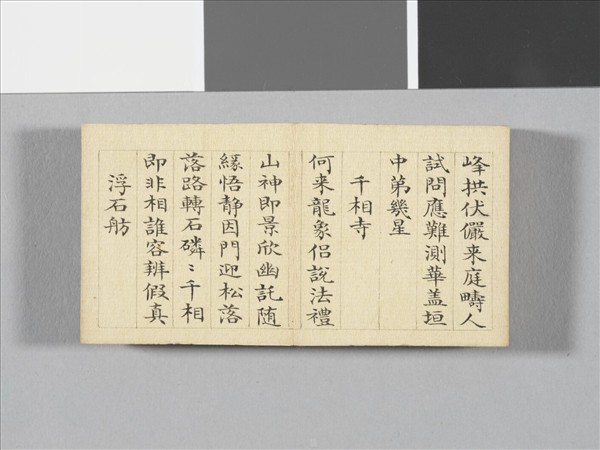 峰拱伏儼来庭疇人
試問應難測華盖垣
中苐幾星
千相寺
何来龍象侣說法禮
山神即景欣幽託随
緣悟静因門迎松落
落路轉石磷〻千相
即非相誰容辨假真
浮石舫